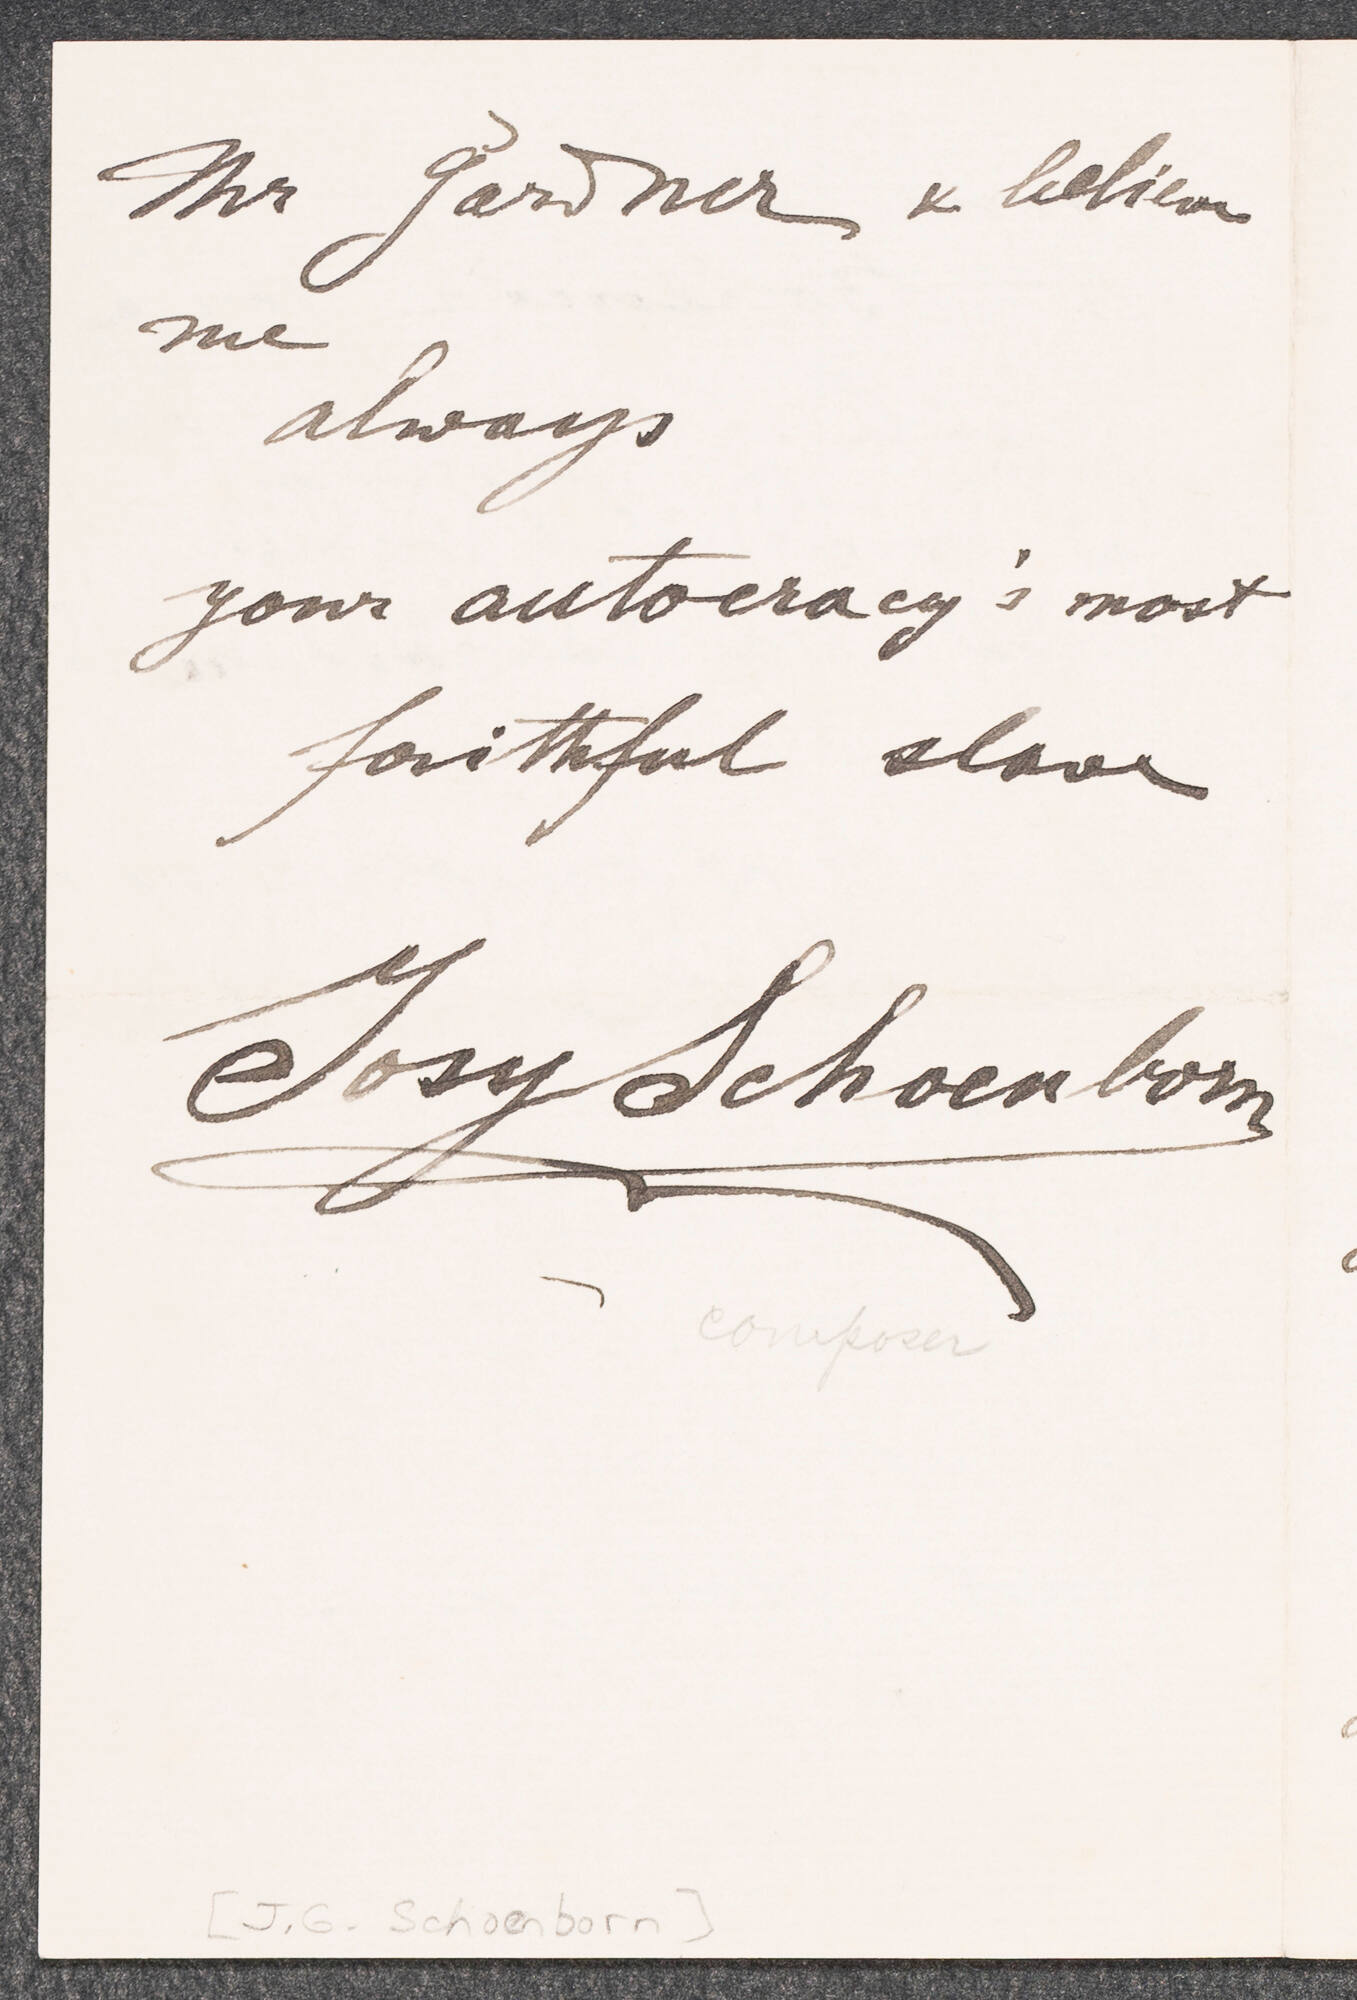 Mr Gardner & believe
me
always
your autocracy's most
faithful slave
Josy Schoenborn
composer
[J.G. Schoenborn]